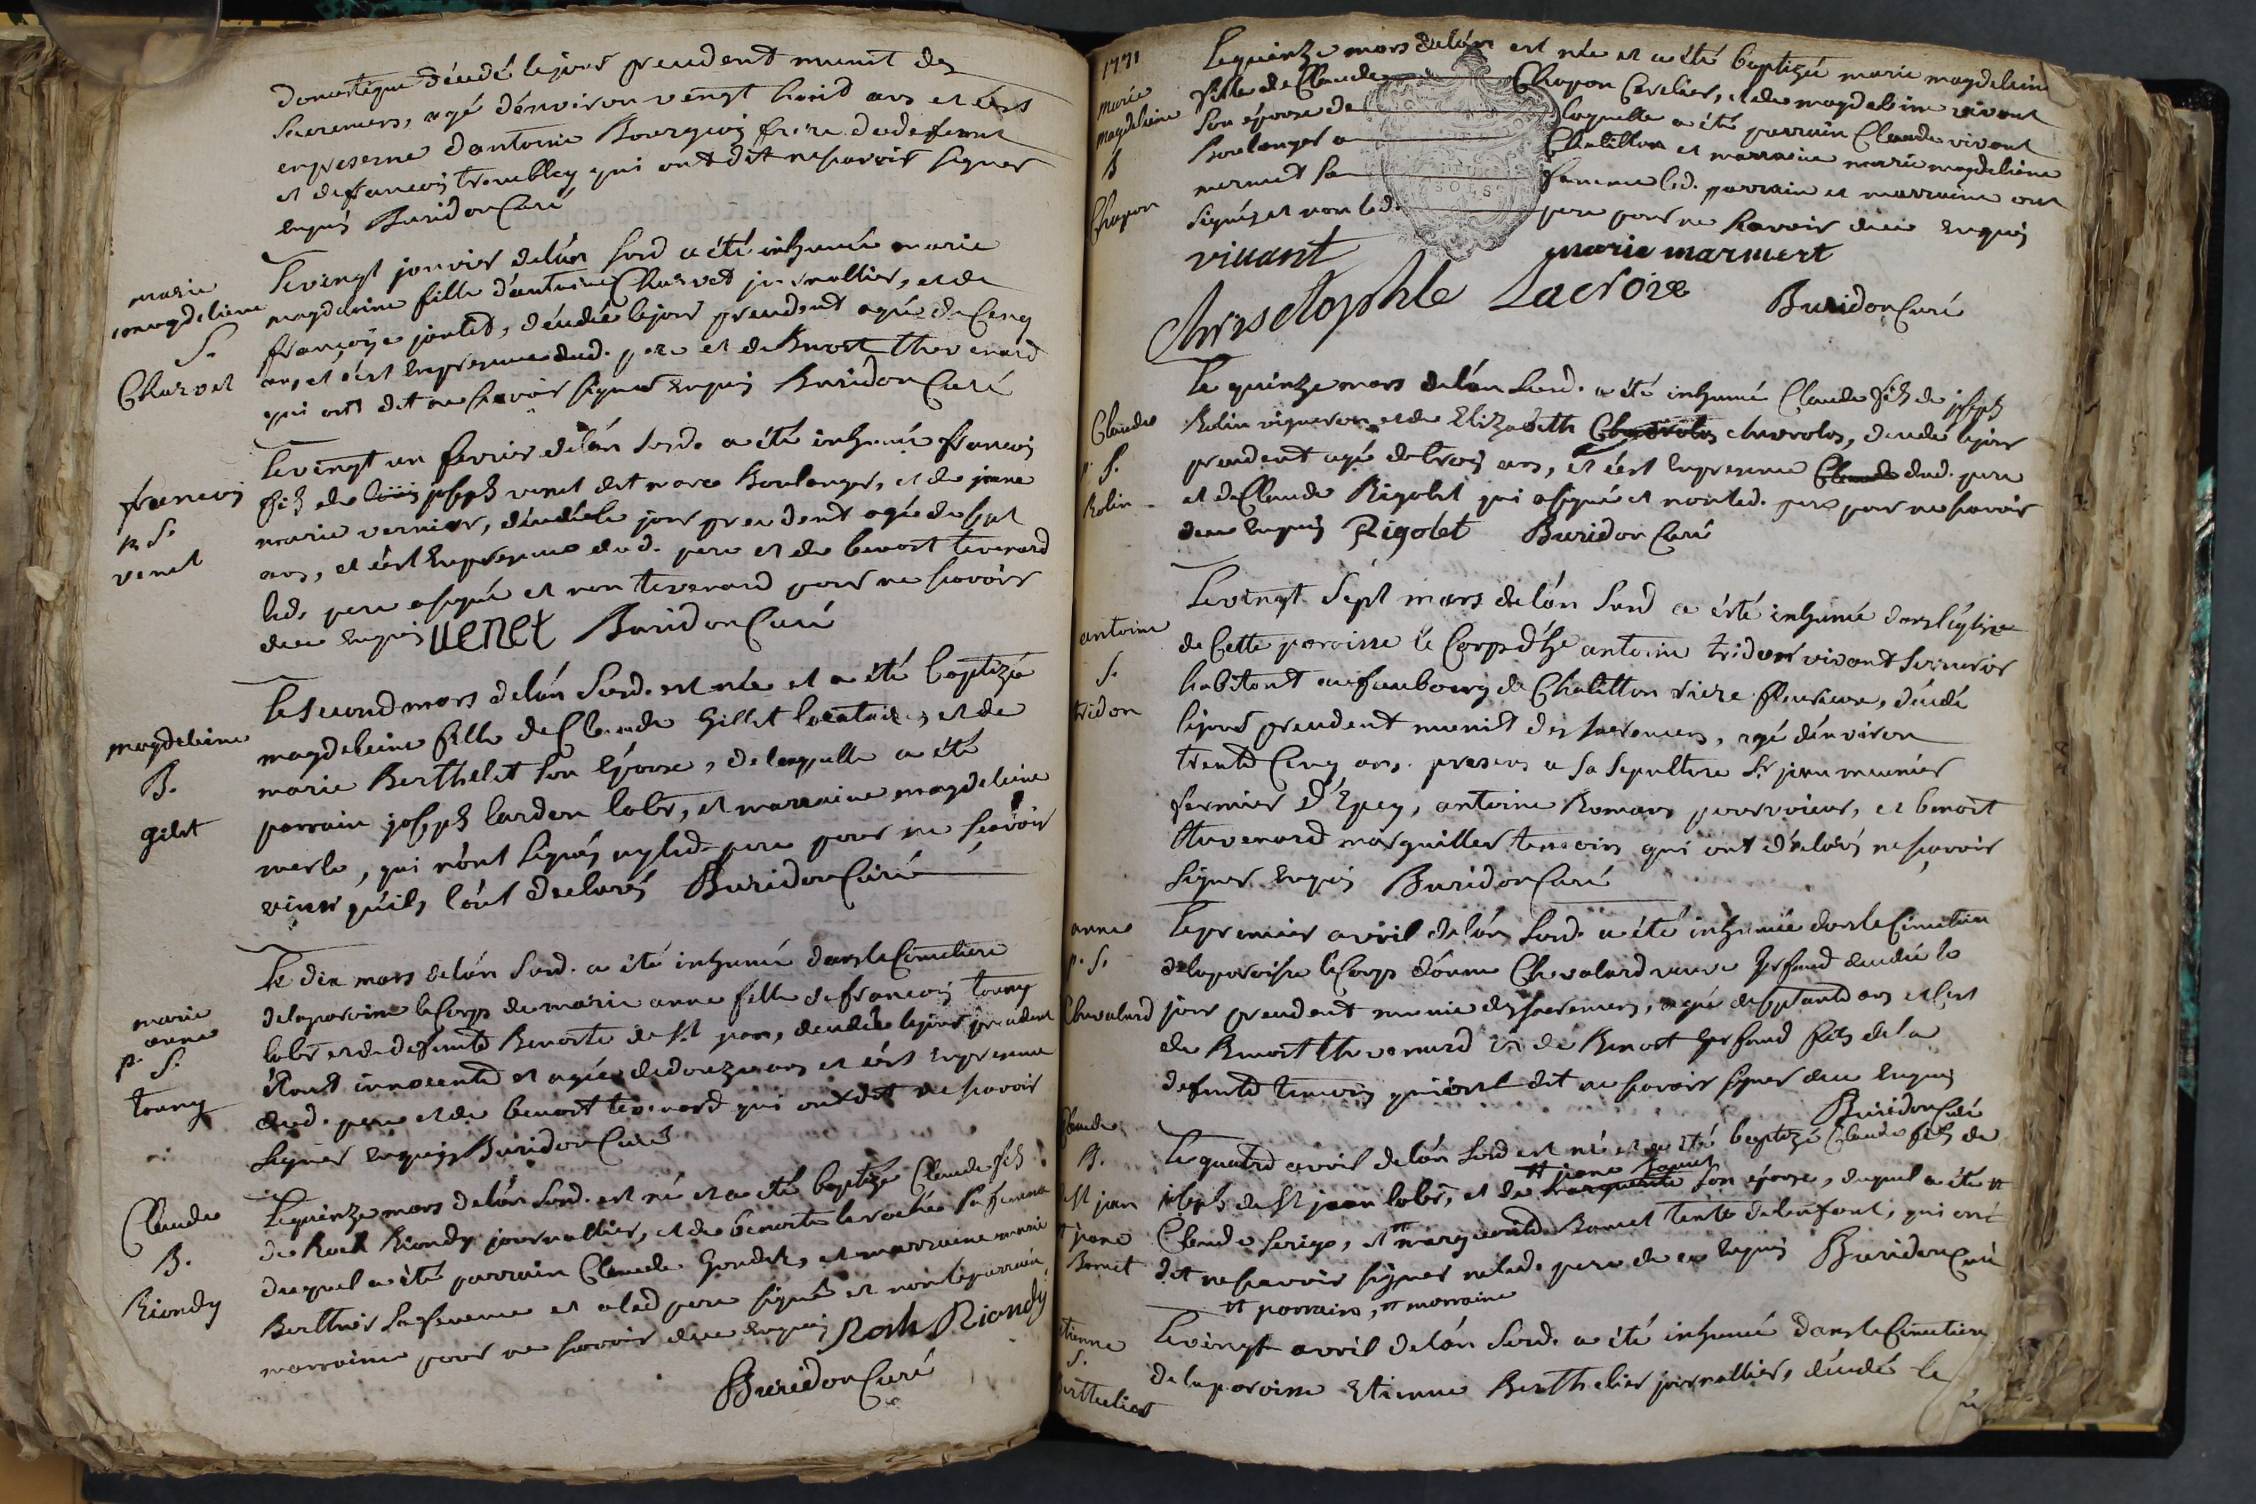 domestique décédé le jour precedent munit des
sacremens, agé d'environ vingt huit ans et c'est
en presence d'antoine Bourgeois frere dud. defunt
et de francois trembley qui ont dit ne sçavoir signer
enquis Buridon Curé
marie
magdeleine
S.
Charvet
Le vingt janvier de l'an susd a été inhumée marie
magdeleine fille d'antoine Charvet journallier, et de
françoise jontet, décédée le jour precedent agée de Cinq
ans, et c'est en presence dud. pere et de Benoit thevenard
qui ont dit ne sçavoir signer enquis Buridon Curé
francois
p. S.
venet
Le vingt un fevrier de l'an susd. a été inhumé francois
fils de joseph venet dit marc Boulanger, et de jeanne
marie vernier, décédé le jour precedent agé de sept
ans, et c'est en presence dud. pere et de benoit tevenard
led. pere a signé et non tevenard pour ne sçavoir
de ce enquis venet Buridon Curé
magdeleine
B.
gilet
Le second mars de l'an susd. est née et a été baptizée
magdeleine fille de Claude Gillet locataire, et de
marie Berthelet son épouse, de laquelle a été
parrain joseph lardon labr, et marraine magdeleine
merle, qui n'ont signés ny led. pere pour ne sçavoir
ainsy qu'ils l'ont declarés Buridon Curé
marie
anne
p. S.
touny
Le dix mars de l'an susd. a été inhumé dans le Cimetiere
de la paroisse le Corps de marie anne fille de francois touny
labr et de defunte Benoite de st jean, décédée le jour precedent
étant innocente et agée de douze ans et c'est en presence
dud. pere et de benoit tevenard qui ont dit ne sçavoir
signer enquis Buridon Curé
Claude
B.
Riondy
Le quinze mars de l'an susd. est né et a été baptizé Claude fils
de Roch Riondy journallier, et de benoite la rochée sa femme
duquel a été parrain Claude Gondet, et marraine marie
Berthier sa femme et a led pere signé et non le parrain
marraine pour ne sçavoir de ce enquis Roch Riondy
Buridon Curé
1771
marie
magdeleine
B
Chapon
Le quinze mars de l'an est née et a été baptizée marie magdeleine
fille de Claude Chapon Cavalier, et de magdeleine vivant
son épouse de laquelle a été parrain Claude vivant
Boulanger a Chatillon et marraine marie magdeleine
mermet sa femme led. parrain et marraine ont
signés et non led. pere pour ne sçavoir de ce enquis
SOLS
vivant marie marmert
Christophle Lacroix Buridon Curé
Claude
p. S.
Rolin
Le quinze mars de l'an susd. a été inhumé Claude fils de joseph
Rolin vigneron et de Elizabeth chavrolos, décédé le jour
precedent agé de trois ans, et c'est en presence dud. pere
et de Claude Rigolet qui a signé et non led. pere pour ne sçavoir
de ce enquis Rigolet Buridon Curé
antoine
S.
tridon
Le vingt sept mars de l'an susd a été inhumé dans l'église
de Cette paroisse le Corps d'he antoine tridon vivant serrurier
habitant au faubourg de Chatillon, décédé
le jour precedent munit des sacremens, agé d'environ
trente Cinq ans. presens a sa sepulture Sr jean meunier
fermier d'Epey, antoine Romans pourvoieur, et benoit
thevenard marguillier temoins qui ont declarés ne sçavoir
signer enquis Buridon Curé
anne
p. S.
Chevalard
Le premier avril de l'an susd. a été inhumée dans le Cimetiere
de la paroisse le Corps d'anne Chevalard veuve décédée le
jour precedent munie des sacremens, agée de septante ans et c'est
de Benoit thevenard et de Benoit fils de la
defunte temoins qui ont dit ne sçavoir signer de ce enquis
Buridon Curé
Claude
B.
de st jean
jeane
Bomet
Le quatre avril de l'an susd est né et a été baptizé Claude fils de
joseph de st jean labr, et de jeane Bomet son épouse, duquel a été
Claude serigo, et marguerite Bomet tente de l'enfant, qui ont
dit ne sçavoir signer ni led. pere de ce enquis Buridon Curé
parrain, marraine
Etienne
S.
Berthelier
Le vingt avril de l'an susd. a été inhumé dans le Cimetiere
de la paroisse Etienne Berthelier journallier, décédé le